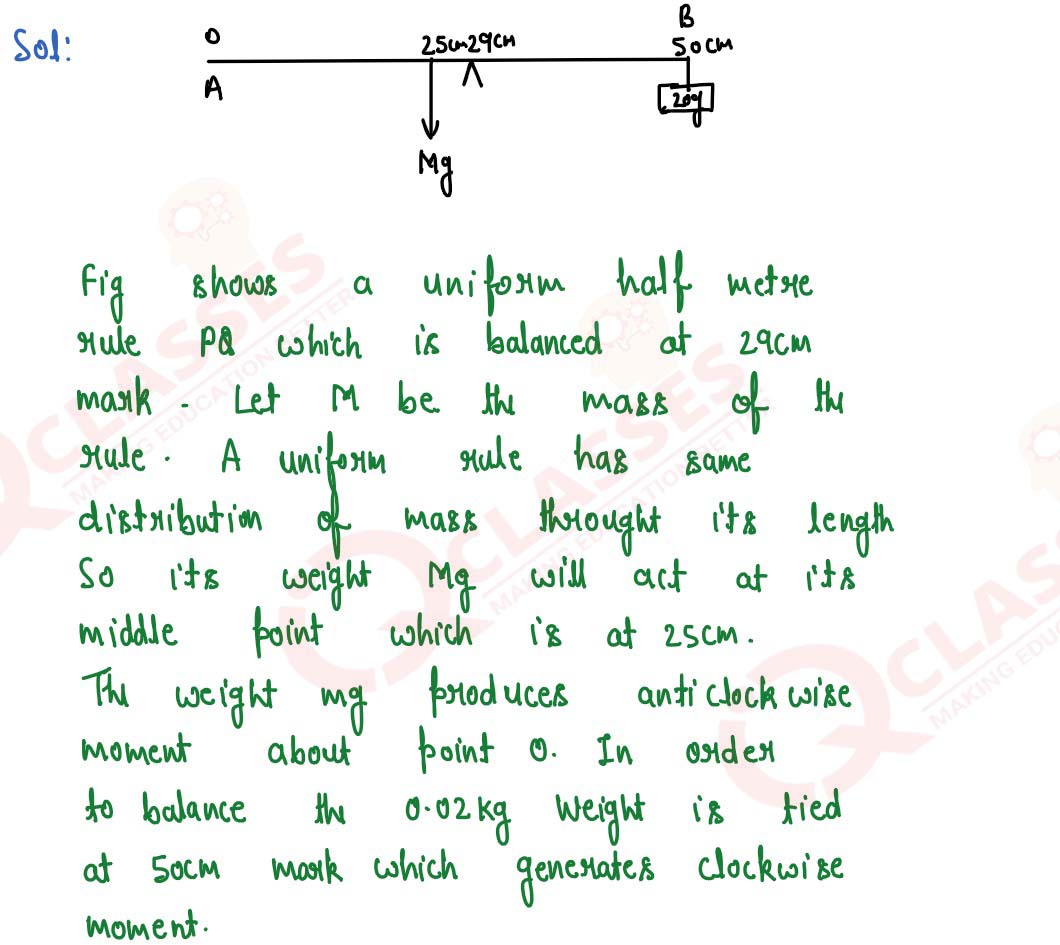 Sol:
O
25cm 29cm
B
50cm
A
20g
Mg
Fig shows a uniform half metre
rule PQ which is balanced at 29cm
mark. Let M be the mass of the
rule. A uniform rule has same
distribution of mass throught its length
So its weight Mg will act at its
middle point which is at 25cm.
The weight mg produces anticlockwise
moment about point O. In order
to balance the 0.02kg weight is tied
at 50cm mark which generates clockwise
moment.
CLASSES
MAKING EDUCATION BETTER
CLASSES
MAKING EDUCATION BETTER
CLASSES
MAKING EDUC